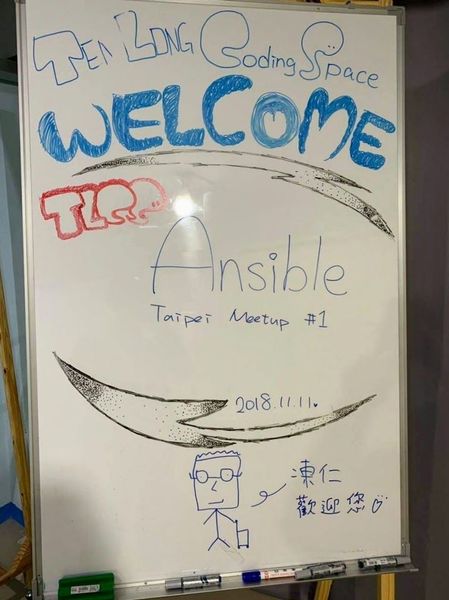 TEN LONG Coding Space
WELCOME
Ansible
Taipei Meetup #1
2018.11.11.
凍仁
歡迎您